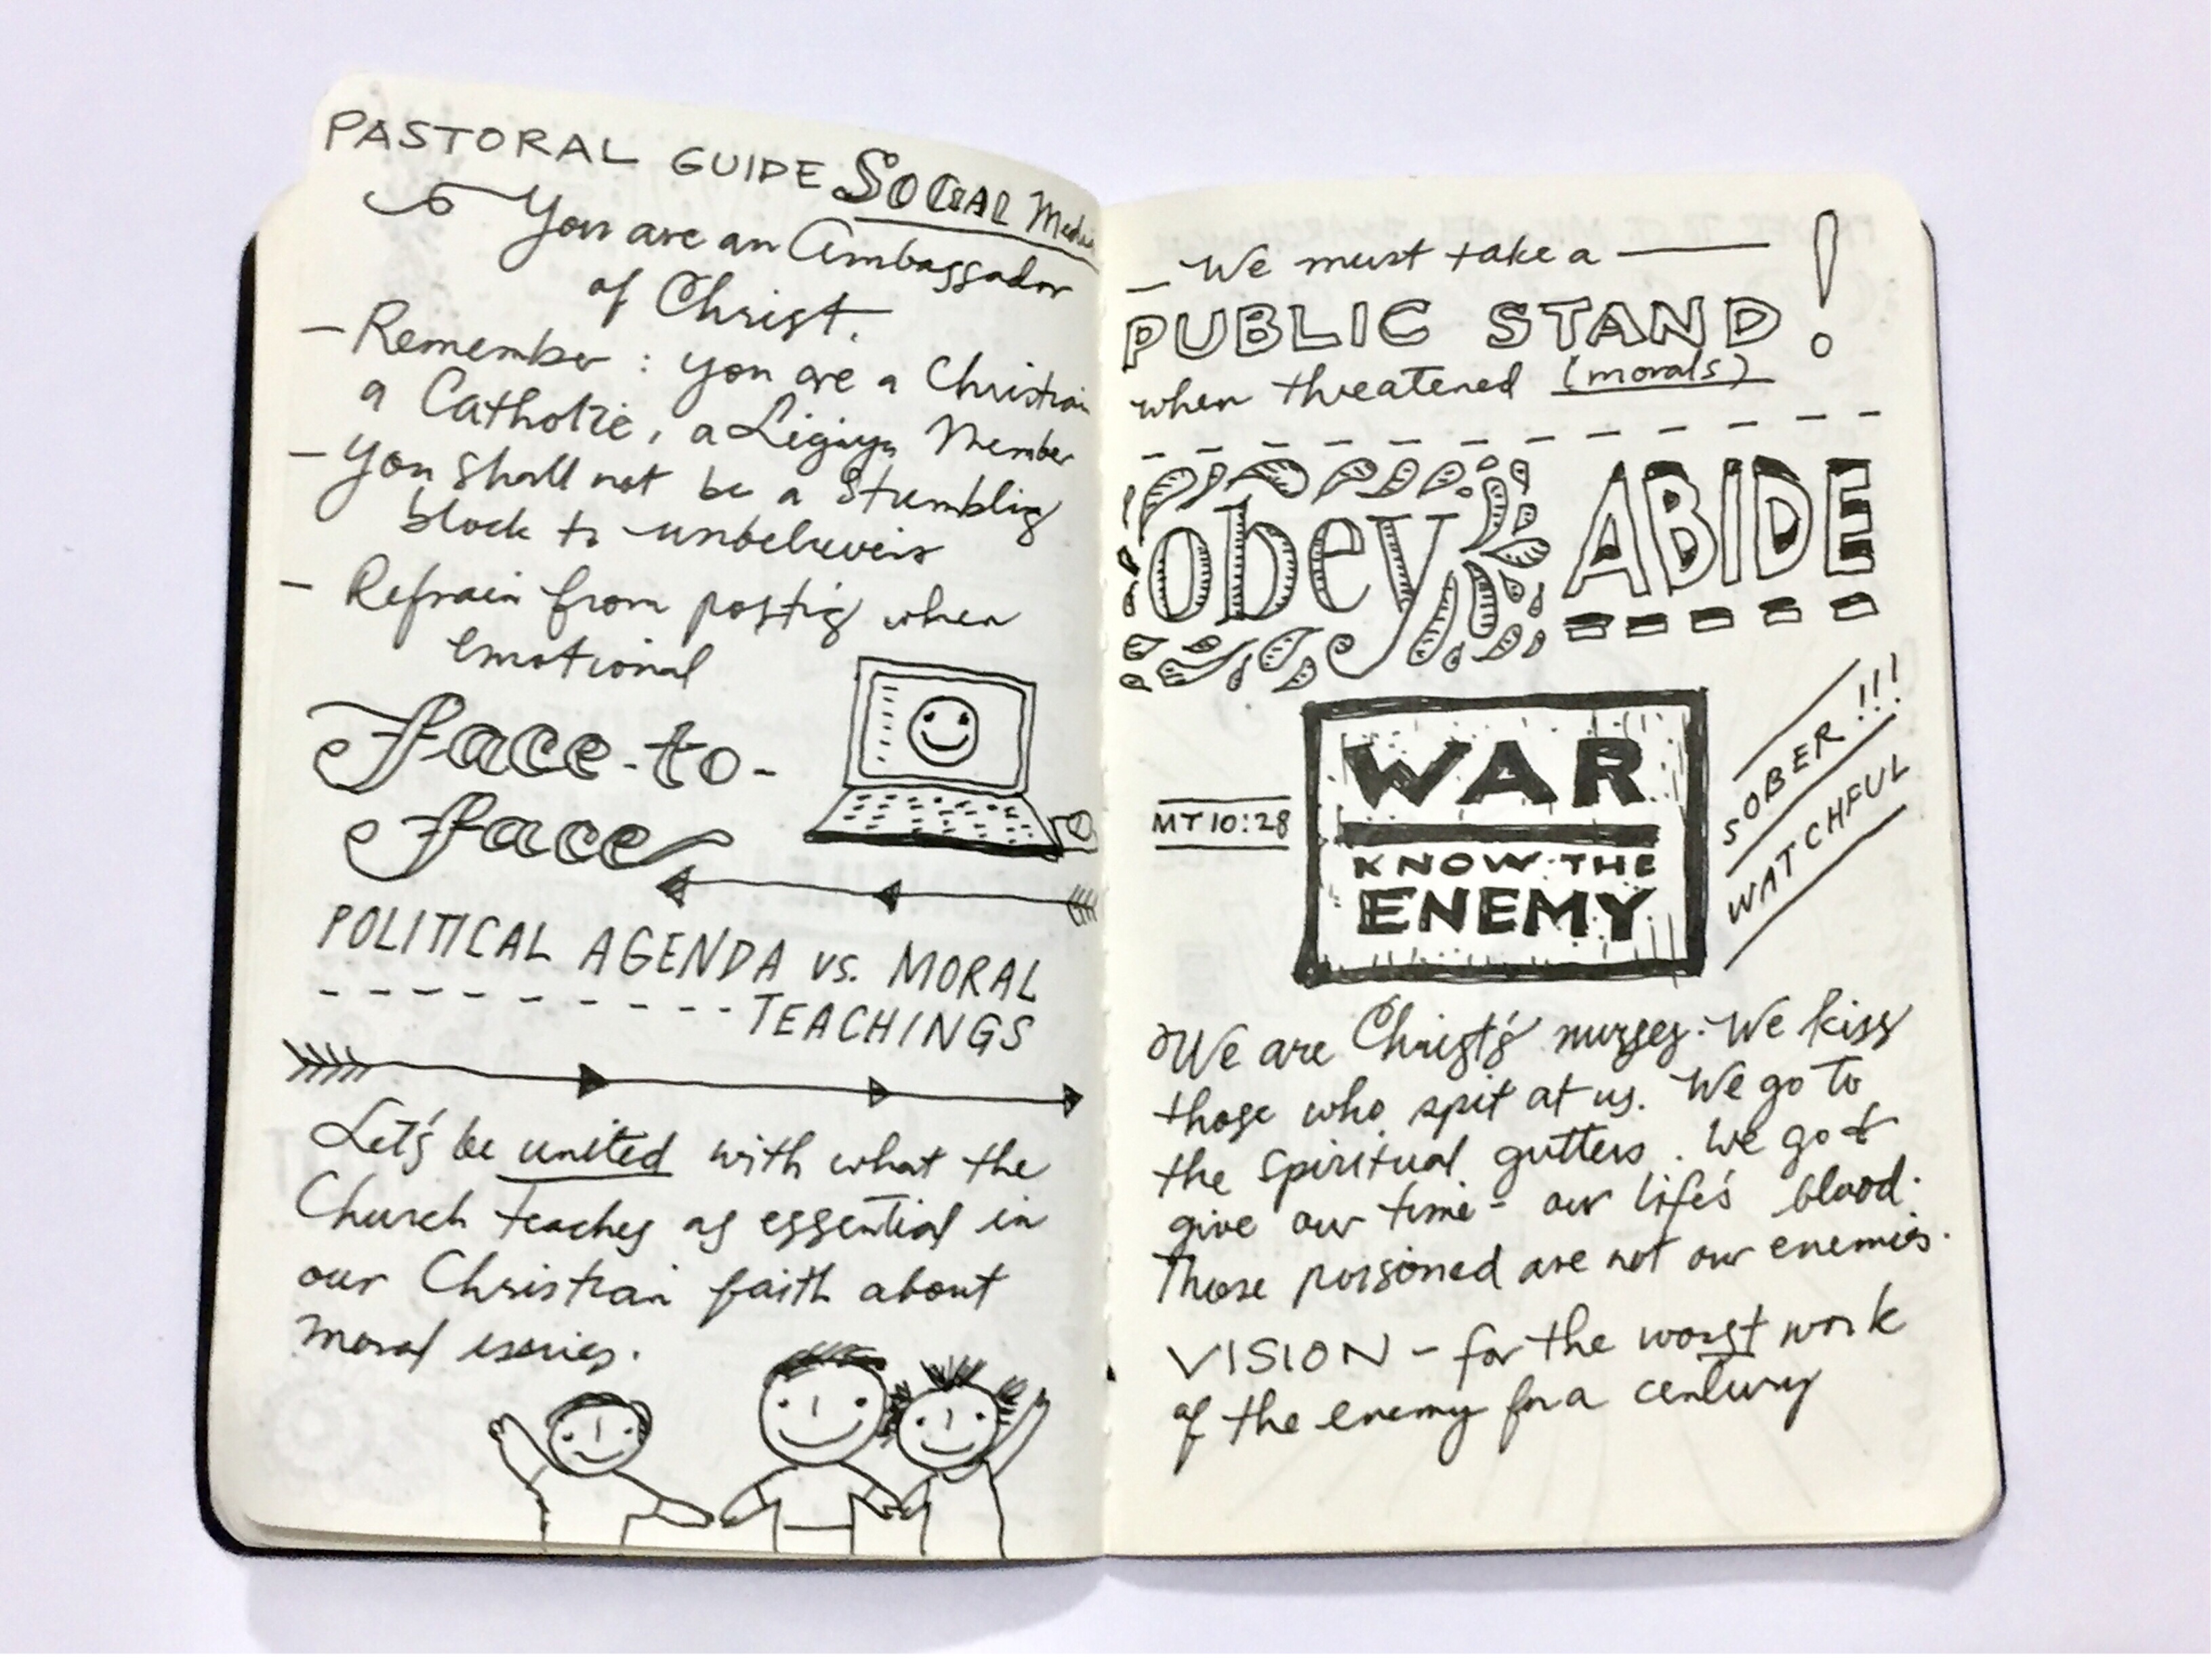 PASTORAL GUIDE SOCIAL Media
You are an Ambassador
of Christ.
- Remember : you are a Christian
a Catholic, a Ligaya Member
- You shall not be a stumblig
block to unbelievers
- Refrain from postig when
emotional
face-to-
face
POLITICAL AGENDA vs. MORAL
TEACHINGS
Let's be united with what the
Church teaches as essential in
our Christian faith about
moral issues.
- We must take a
PUBLIC STAND!
when threatened (morals)
obey ABIDE
MT 10:28
WAR
KNOW THE
ENEMY
SOBER!!!
WATCHFUL
We are Christ's nurses. We kiss
those who spit at us. We go to
the spiritual gutters. We go &
give our time - our life's blood.
Those poisoned are not our enemies.
VISION - for the worst work
of the enemy for a century